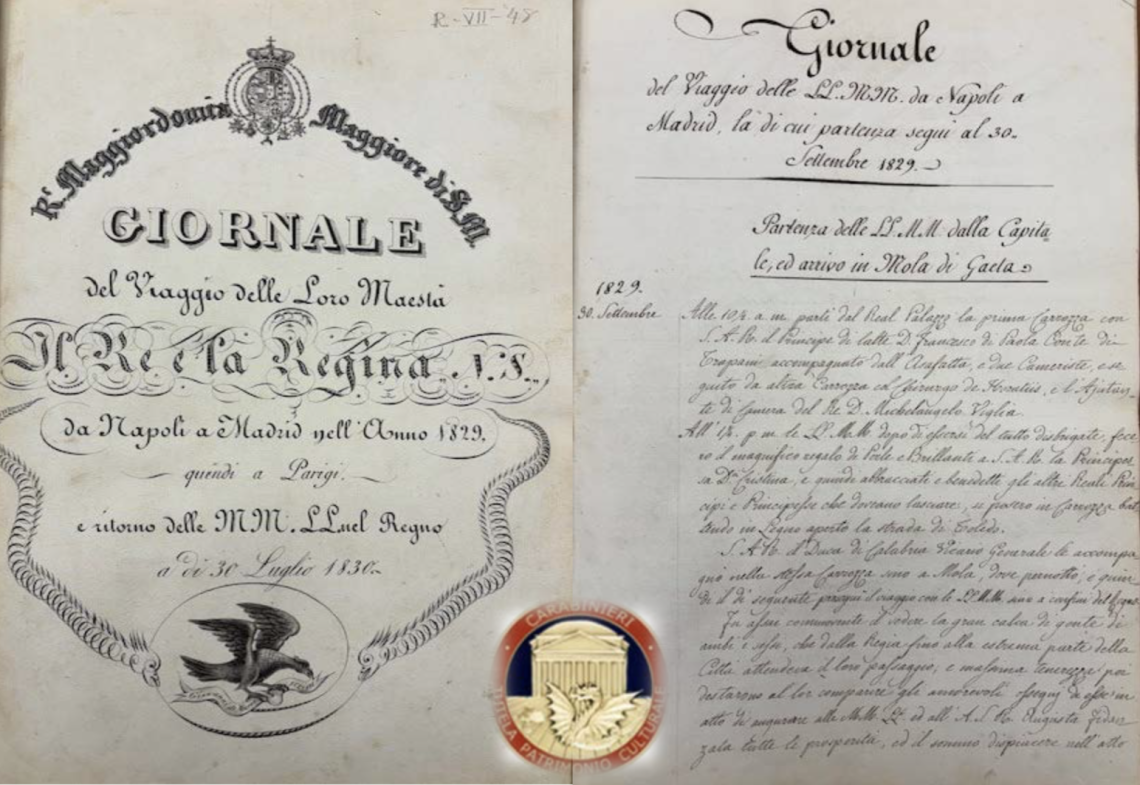 R-VII-48
Rl. Maggiordomia Maggiore di S.M.
GIORNALE
del Viaggio delle Loro Maestà
Il Re e la Regina N.S.
da Napoli a Madrid nell'Anno 1829.
quindi a Parigi.
e ritorno delle MM. LL. nel Regno
a dì 30 Luglio 1830.
Giornale
del Viaggio delle LL. MM. da Napoli a
Madrid, la di cui partenza seguì al 30.
Settembre 1829.
Partenza delle LL. MM. dalla Capita
le, ed arrivo in Mola di Gaeta
1829.
30. Settembre
Alle 10¼ a m. partì dal Real Palazzo la prima Carrozza con
S. A. R. il Principe di latte D. Francesco di Paola Conte di
Trapani accompagnato dall'Asafatta, e due Cameriste, e se
guito da altra Carrozza col Chirurgo de Horatiis, e l'Ajutan
te di Camera del Re D. Michelangelo Viglia.
All' ½ p m. le LL. MM. dopo di essersi del tutto disbrigate, fece
ro il magnifico regalo di Perle e Brillanti a S. A. R. la Principes
sa D. Cristina, e quindi abbracciati e benedetti gli altri Reali Prin
cipi e Principesse che dovevano lasciare, si posero in Carrozza bat
tendo in legno aperto la strada di Toledo.
S. A. R. il Duca di Calabria Vicario Generale le accompa
gnò nella stessa Carrozza sino a Mola, dove pernottò, e quin
di il dì seguente proseguì il viaggio con le LL. MM. sino a' confini del Regno.
Fu assai commovente il vedere la gran calca di gente di
ambi i sessi, che dalla Regia fino alla estrema parte della
Città attendeva il loro passaggio, e massima tenerezza poi
destarono al lor comparire gli amorevoli ossequj di esse in
atto di augurare alle MM. LL. ed all' A. S. R. Augusta Fidan
zata tutte le prosperità, ed il sommo dispiacere nell'atto
CARABINIERI
TUTELA PATRIMONIO CULTURALE